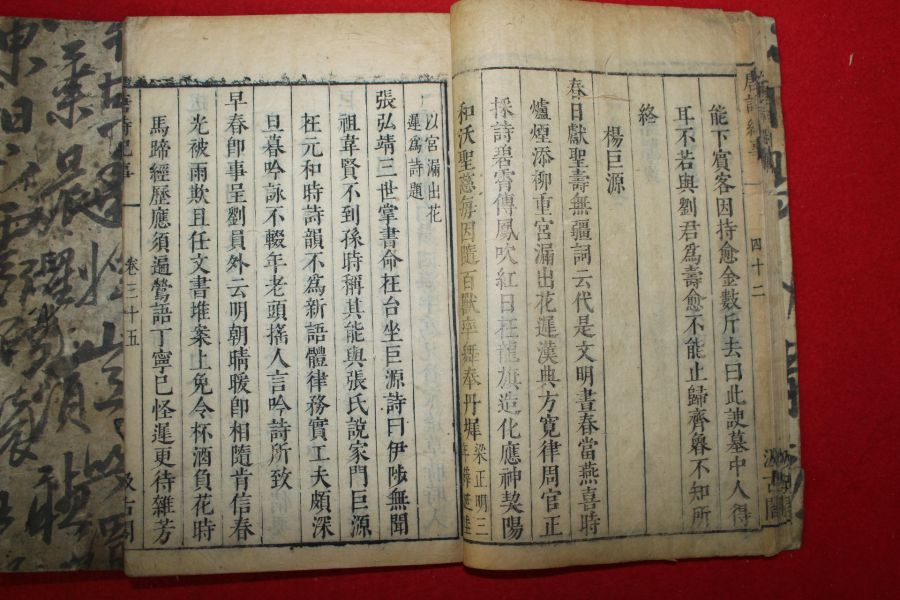 唐詩紀事
四十二
汲古閣
能下賓客因持愈金數斤去曰此諛墓中人得
耳不若與劉君爲壽愈不能止歸齊魯不知所
終
楊巨源
春日獻聖壽無疆詞云代是文明晝春當燕喜時
爐煙添柳重宮漏出花遲漢典方寬律周官正
採詩碧霄傳鳳吹紅日在龍旗造化應神契陽
和沃聖慈每因隨百獸率舞奉丹墀
梁正明三
年
以宮漏出花
遲爲詩題
張弘靖三世掌書命在台坐巨源詩曰伊陟無聞
祖韋賢不到孫時稱其能與張氏說家門巨源
在元和時詩韻不爲新語體律務實工夫頗深
旦暮吟詠不輟年老頭搖人言吟詩所致
早春卽事呈劉員外云明朝晴暖卽相隨肯信春
光被雨欺且任文書堆案上免令杯酒負花時
馬蹄經歷應須遍鶯語丁寧已怪遲更待雜芳
唐詩紀事
卷三十五
汲古閣